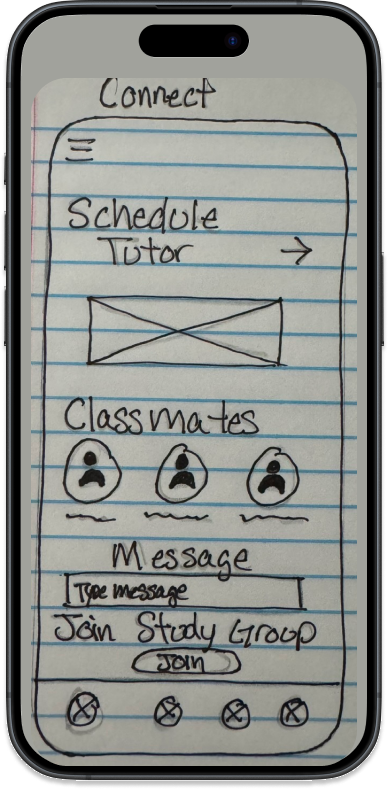 Connect
Schedule
Tutor
Classmates
Message
Type message
Join Study Group
Join